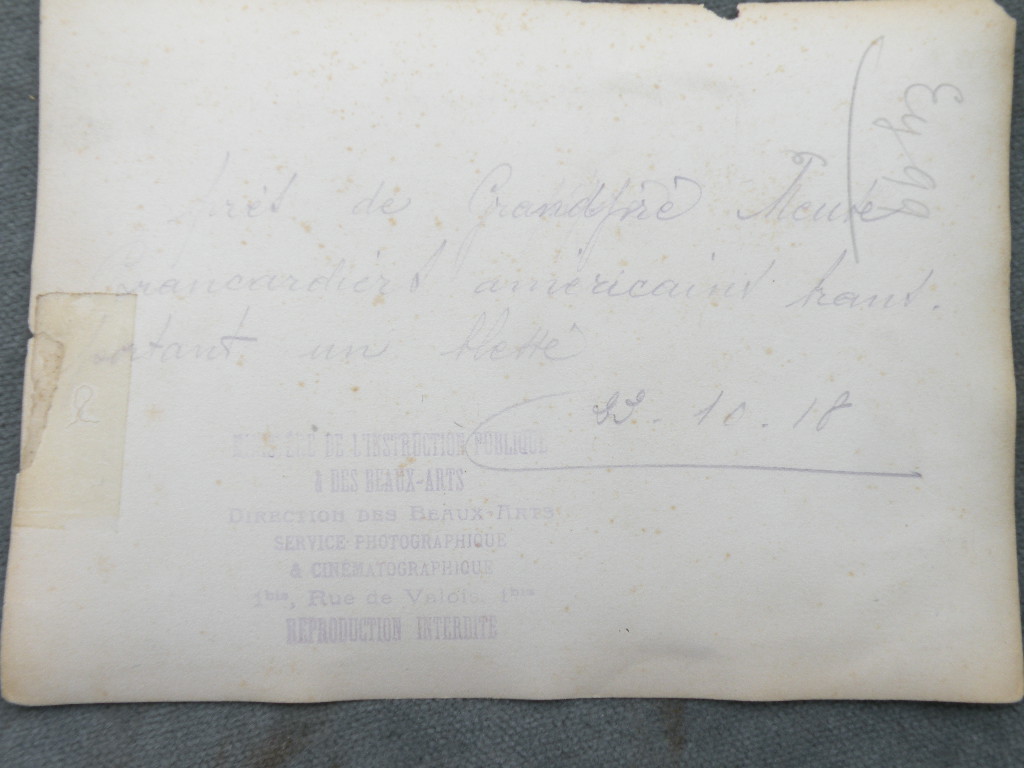 près de Grandpré Meuse
Brancardiers américains trans.
portant un blessé
22. 10. 18
MINISTÈRE DE L'INSTRUCTION PUBLIQUE
& DES BEAUX-ARTS
DIRECTION DES BEAUX-ARTS
SERVICE PHOTOGRAPHIQUE
& CINÉMATOGRAPHIQUE
1bis, Rue de Valois, 1bis
REPRODUCTION INTERDITE